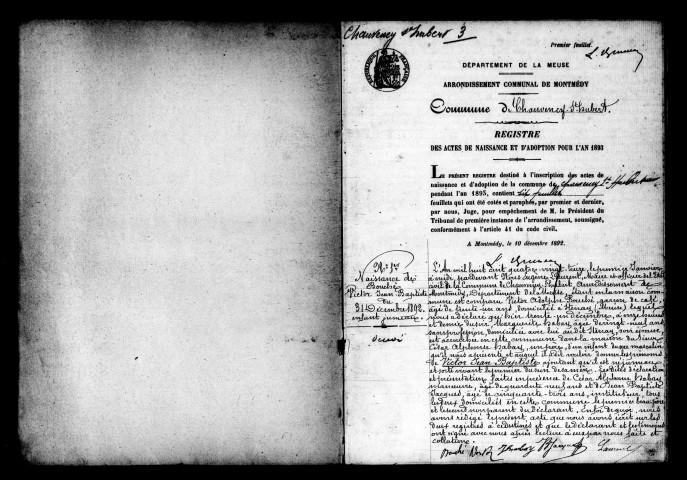 Chauvency St hubert 3
Premier feuillet.
DÉPARTEMENT DE LA MEUSE
ARRONDISSEMENT COMMUNAL DE MONTMÉDY
Commune de Chauvency-St-hubert.
REGISTRE
DES ACTES DE NAISSANCE ET D'ADOPTION POUR L'AN 1893
LE PRÉSENT REGISTRE destiné à l'inscription des actes de
naissance et d'adoption de la commune de Chauvency St Hubert
pendant l'an 1893, contient six feuillets
feuillets qui ont été cotés et paraphés, par premier et dernier,
par nous, Juge, pour empêchement de M. le Président du
Tribunal de première instance de l'arrondissement, soussigné,
conformément à l'article 41 du code civil.
A Montmédy, le 10 décembre 1892.
No 1er
Naissance de
Victor Jean Baptiste
du
31 Décembre 1892
enfant jumeau
L'An mil huit cent quatre vingt treize, le premier Janvier
à midi, pardevant Nous Eugène Laurent, Maire et officier de l'Etat
civil de la Commune de Chauvency St hubert, arrondissement de
Montmédy, Département de la Meuse, étant en la maison com-
mune est comparu Victor Adolphe garçon de café,
âgé de trente un ans, domicilié à Stenay (Meuse) lequel
nous a déclaré qu'hier trente un décembre, à
et demie du soir, Marguerite âgée de vingt neuf ans
sans profession, domiciliée avec lui au dit Stenay, son épouse,
est accouchée en cette commune dans la maison du Sieur
César Alphonse son père, d'un enfant du sexe masculin
qu'il nous a présenté et auquel il a dit vouloir donner les prénoms
de Victor Jean Baptiste
et présentation faites en présence de César Alphonse
manœuvre, âgé de quarante neuf ans et de Jean Baptiste
Jacques, âgé de cinquante trois ans, instituteur, tous
les deux domiciliés en cette commune
du déclarant, en foi de quoi, nous
avons rédigé le présent acte que nous avons écrit sur les
deux registres à ce destinés et que le déclarant et les témoins
ont signé avec nous après lecture à eux par nous faite et
collation.